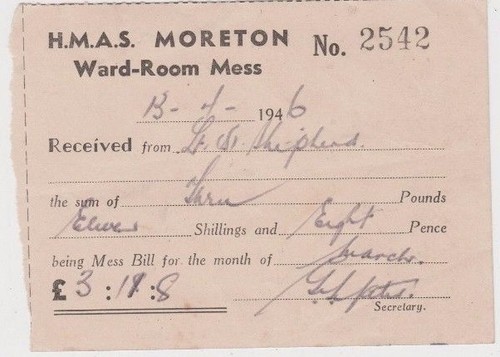 H.M.A.S. MORETON No. 2542
Ward-Room Mess
13-4-1946
Received from Lt. Shepherd.
the sum of Three Pounds
Eleven Shillings and Eight Pence
being Mess Bill for the month of March.
£ 3 : 11 : 8
Secretary.